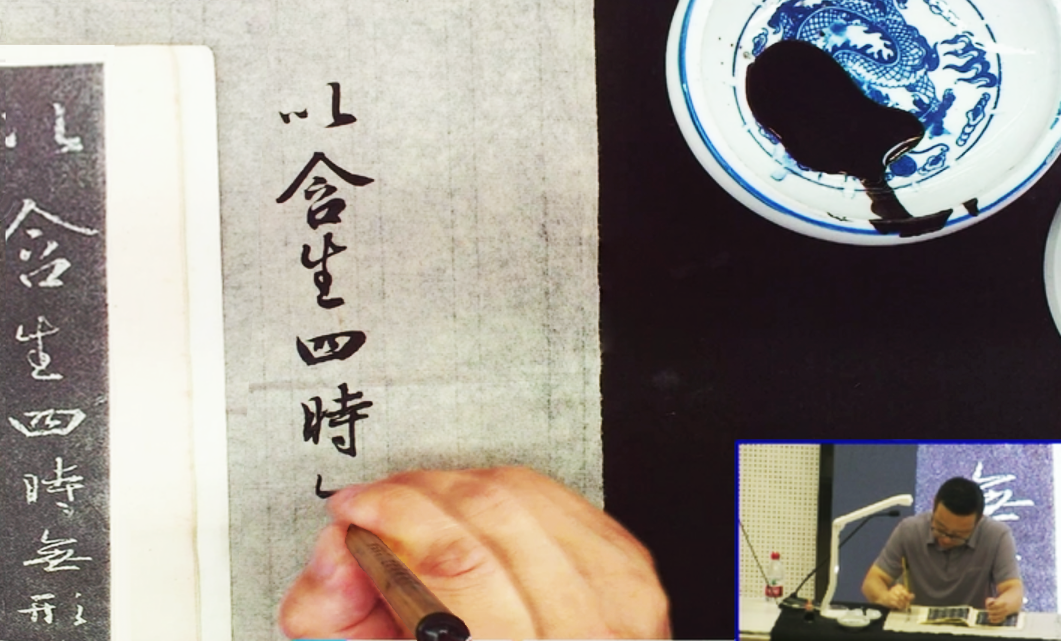 以含生四時無形
以含生四時
無